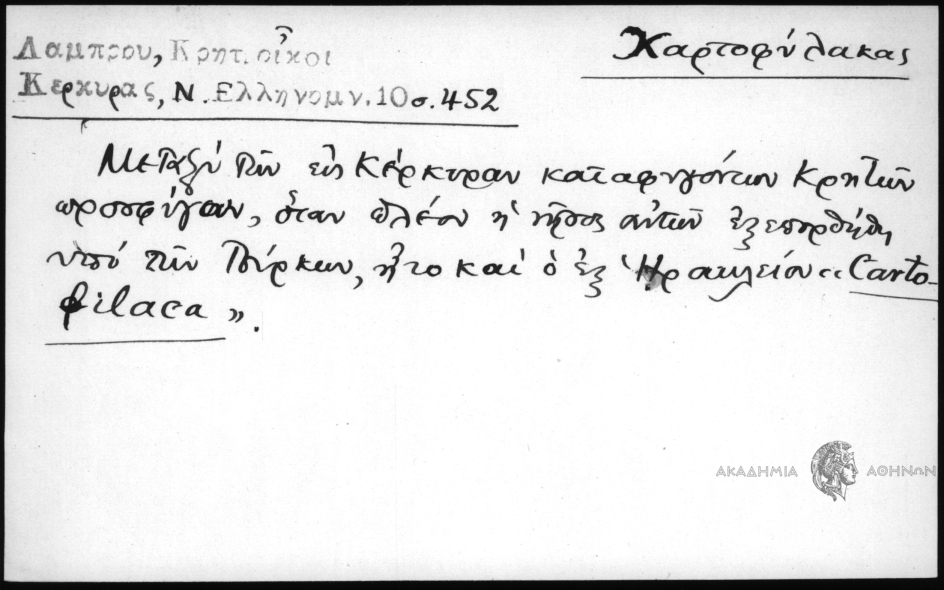 Λαμπρου, Κρητ. οἶκοι
Κερκυρας, Ν. Ελληνομν. 10 σ. 452
Χαρτοφύλακας
Μεταξὺ τῶν εἰς Κέρκυραν καταφυγόντων Κρητῶν
προσφύγων, ὅταν πλέον ἡ νῆσος αὐτῶν ἐξεπορθήθη
ὑπὸ τῶν Τούρκων, ἦτο καὶ ὁ ἐξ Ἡρακλείου «Carto-
filaca».
ΑΚΑΔΗΜΙΑ ΑΘΗΝΩΝ